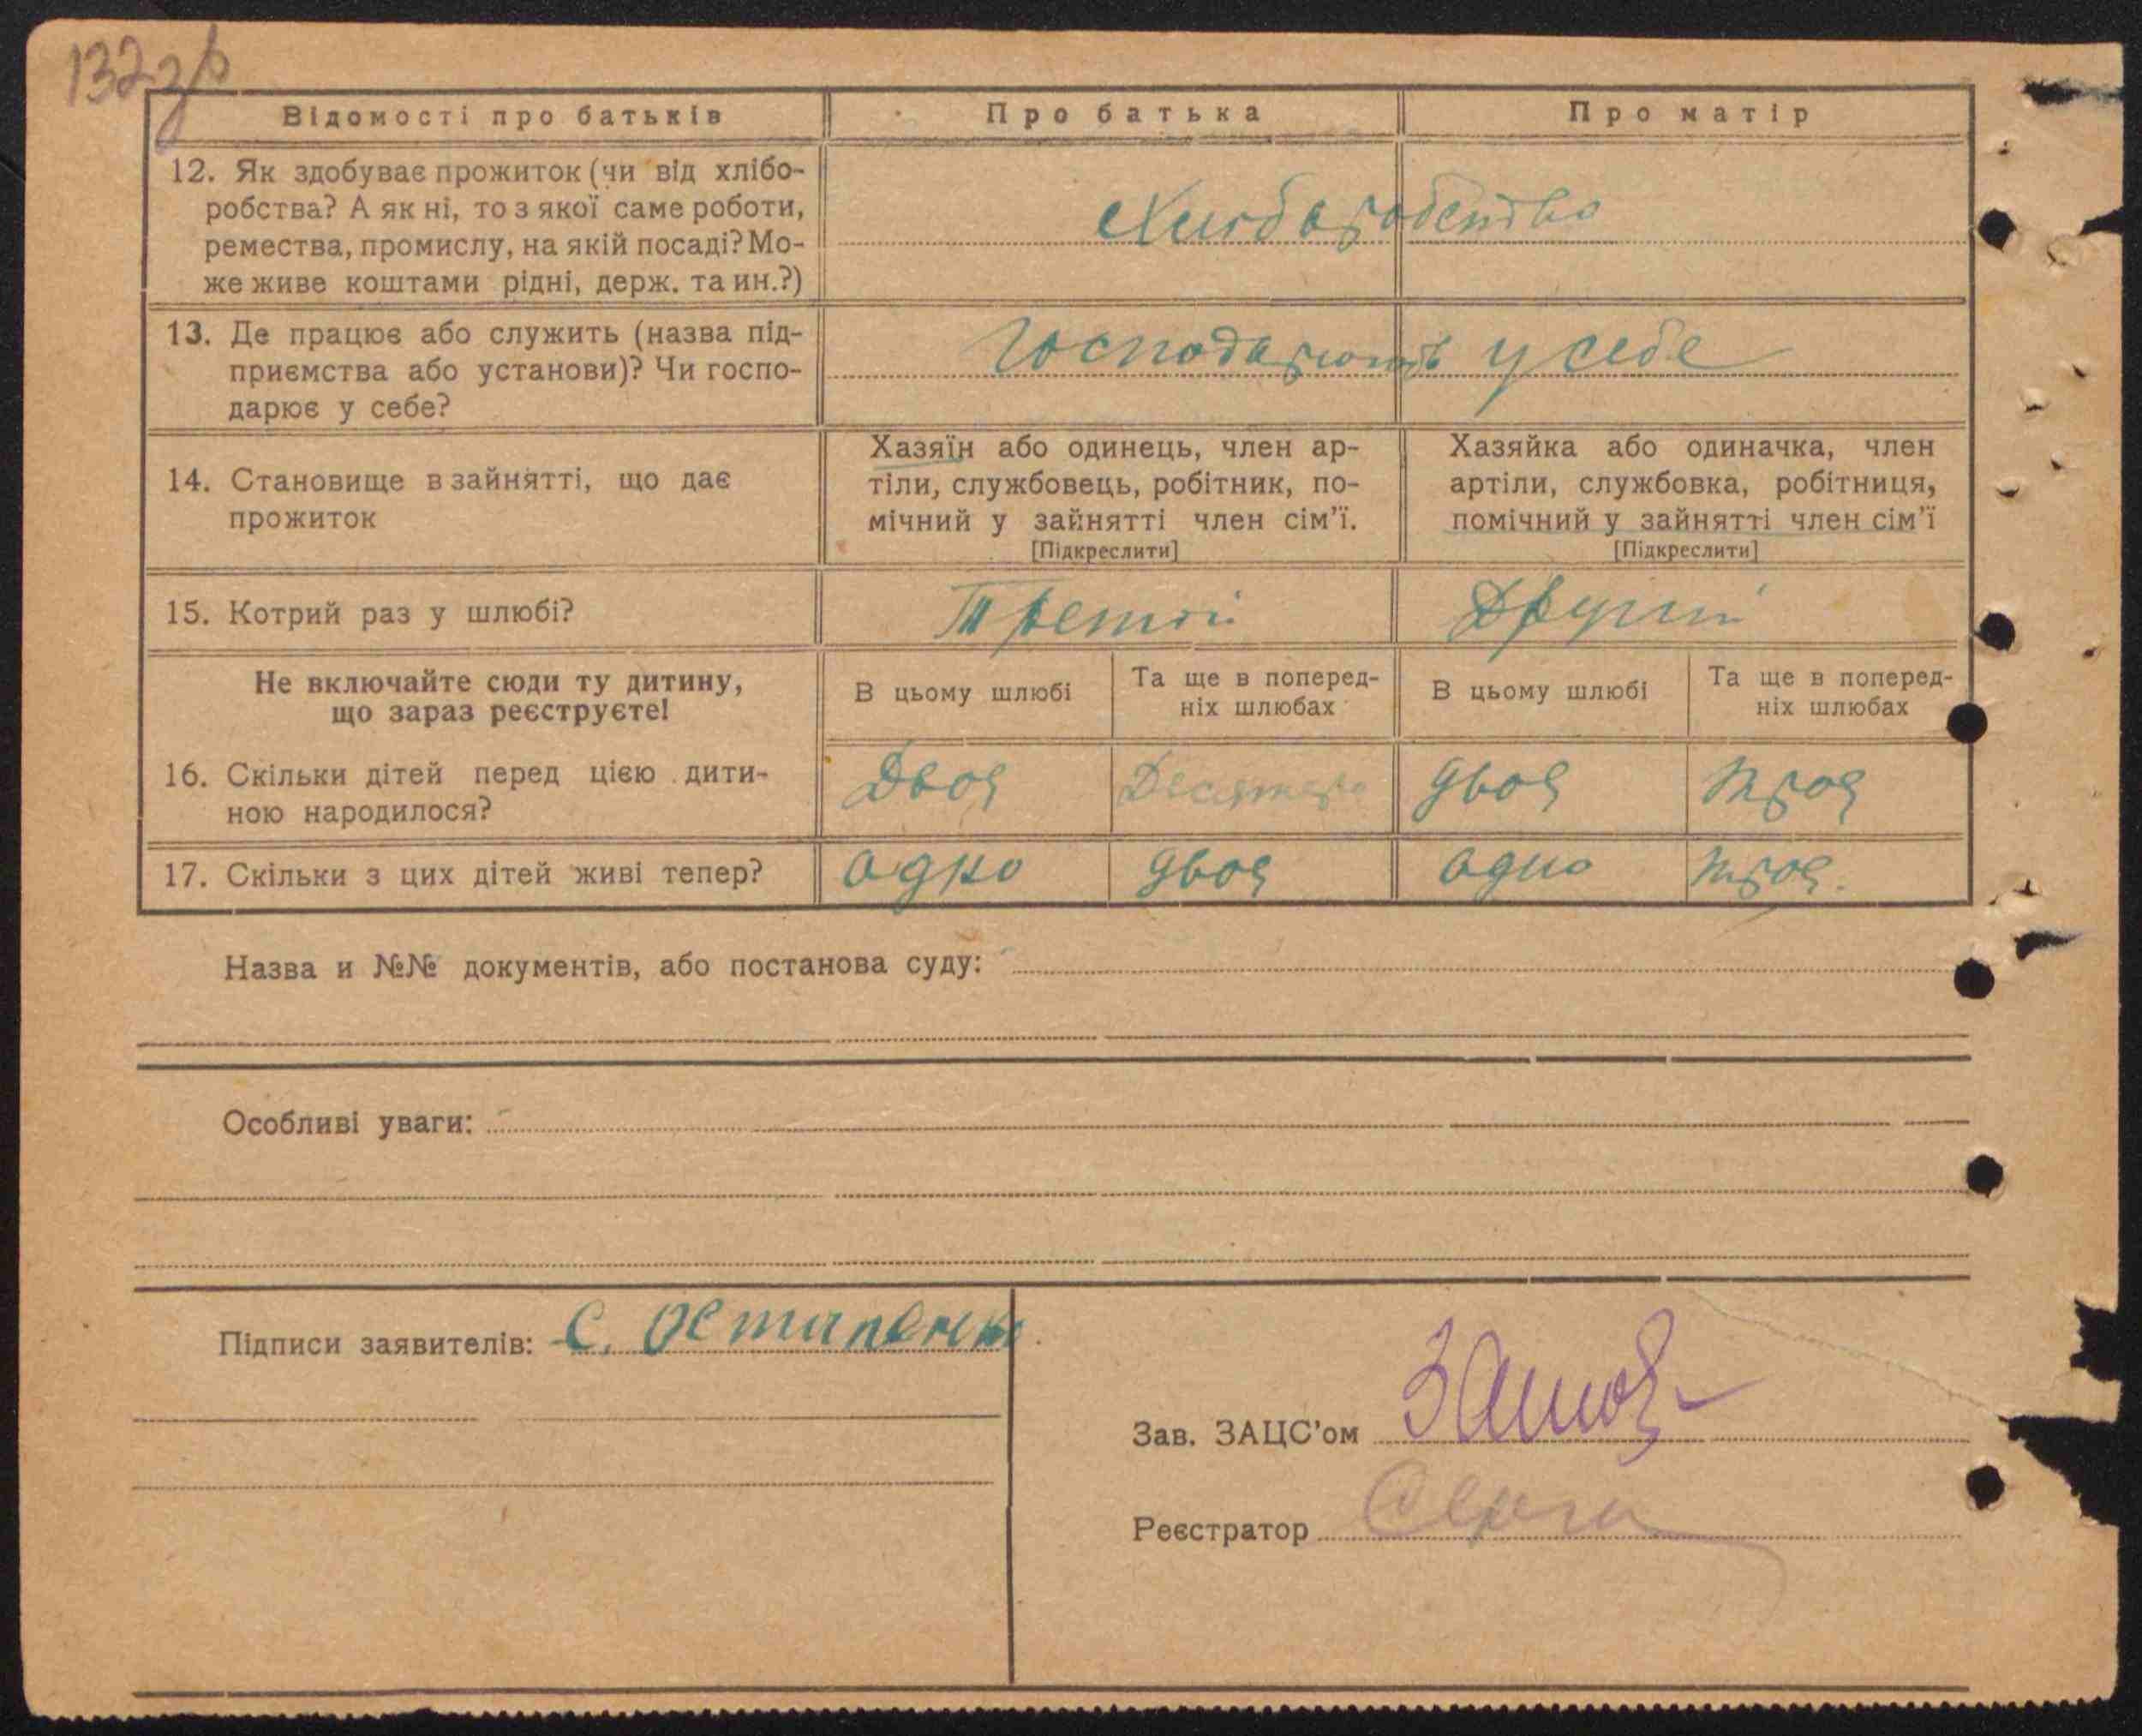 132 зв
Відомості про батьків
Про батька
Про матір
12. Як здобуває прожиток (чи від хлібо-
робства? А як ні, то з якої саме роботи,
ремества, промислу, на якій посаді? Мо-
же живе коштами рідні, держ. та ин.?)
Хлібаробство
13. Де працює або служить (назва під-
приємства або установи)? Чи госпо-
дарює у себе?
Господарюють у себе
14. Становище в зайнятті, що дає
прожиток
Хазяїн або одинець, член ар-
тіли, службовець, робітник, по-
мічний у зайнятті член сім'ї.
[Підкреслити]
Хазяйка або одиначка, член
артіли, службовка, робітниця,
помічний у зайнятті член сім'ї
[Підкреслити]
15. Котрий раз у шлюбі?
Третій
Другий
Не включайте сюди ту дитину,
що зараз реєструєте!
В цьому шлюбі
Та ще в поперед-
ніх шлюбах
В цьому шлюбі
Та ще в поперед-
ніх шлюбах
16. Скільки дітей перед цією дити-
ною народилося?
Двоя
Десятеро
двоя
троя
17. Скільки з цих дітей живі тепер?
одно
двоя
одно
троя.
Назва и №№ документів, або постанова суду:
Особливі уваги:
Підписи заявителів: С. Остапенко
Зав. ЗАЦС'ом
Реєстратор